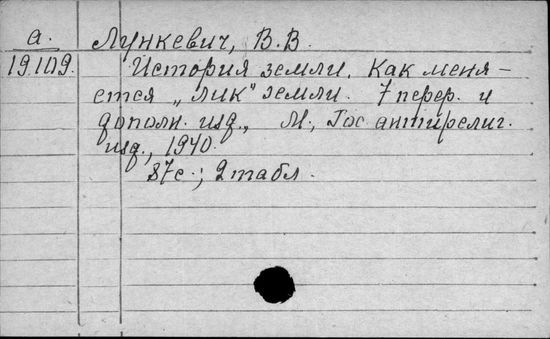 а. Лункевич, В.В.
19.109. История земли. Как меня-
ется „лик" земли. 7 перер. и
дополн. изд., М., Гос. антирелиг.
изд., 1940.
87с.; 2 табл.